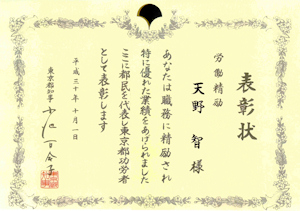 表彰状
労働精励
天野 智 様
あなたは職務に精励され
特に優れた業績をあげられました
ここに都民を代表し東京都功労者
として表彰します
平成三十年十月一日
東京都知事 小池百合子